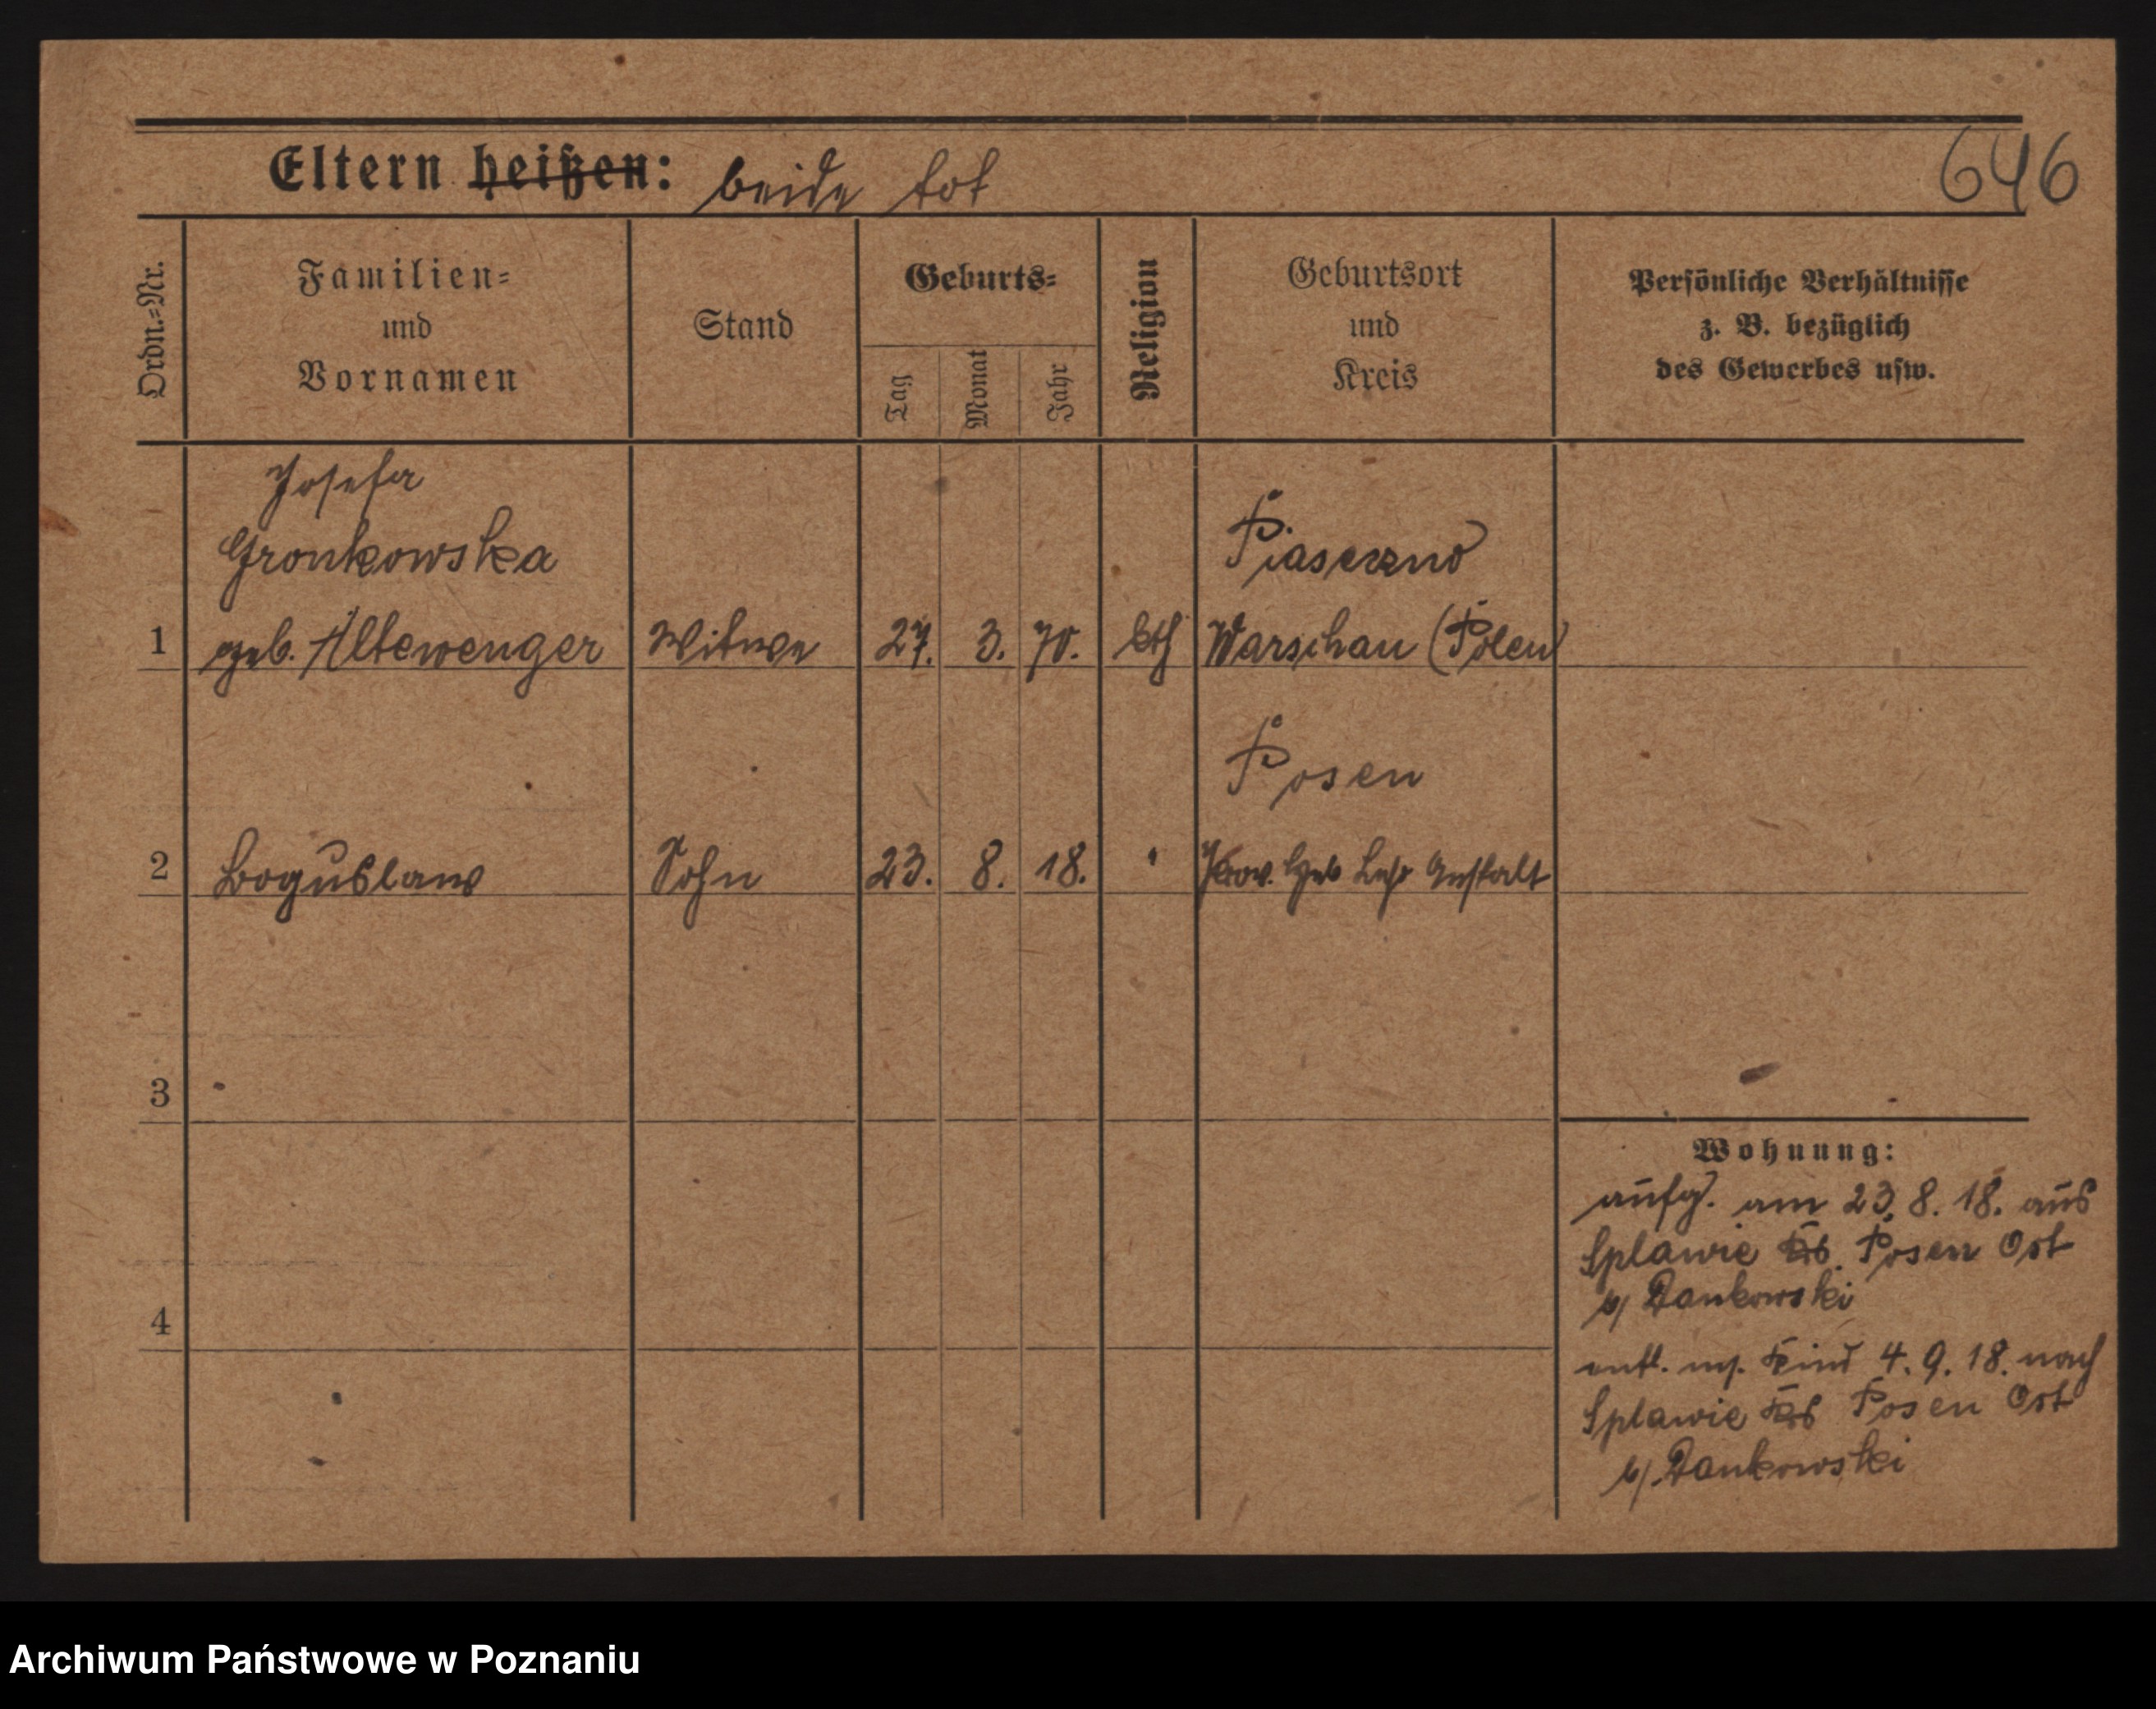 Eltern heißen: beide tot
646
Ordn.=Nr.
Familien=
und
Vornamen
Stand
Geburts=
Tag
Monat
Jahr
Religion
Geburtsort
und
Kreis
Persönliche Verhältnisse
z. B. bezüglich
des Gewerbes usw.
Josefa
Gronkowska
Piaseczno
1 geb. Altewenger Witwe 27. 3. 70. kth Warschau (Polen)
Posen
2 Boguslaw Sohn 23. 8. 18. " Prov. Heb Lehr Anstalt
3
4
Wohnung:
aufg. am 23.8.18. aus
Splawie Krs. Posen Ost
b/ Dankowski
entl. m. Kind 4.9.18. nach
Splawie Krs Posen Ost
b/ Dankowski
Archiwum Państwowe w Poznaniu